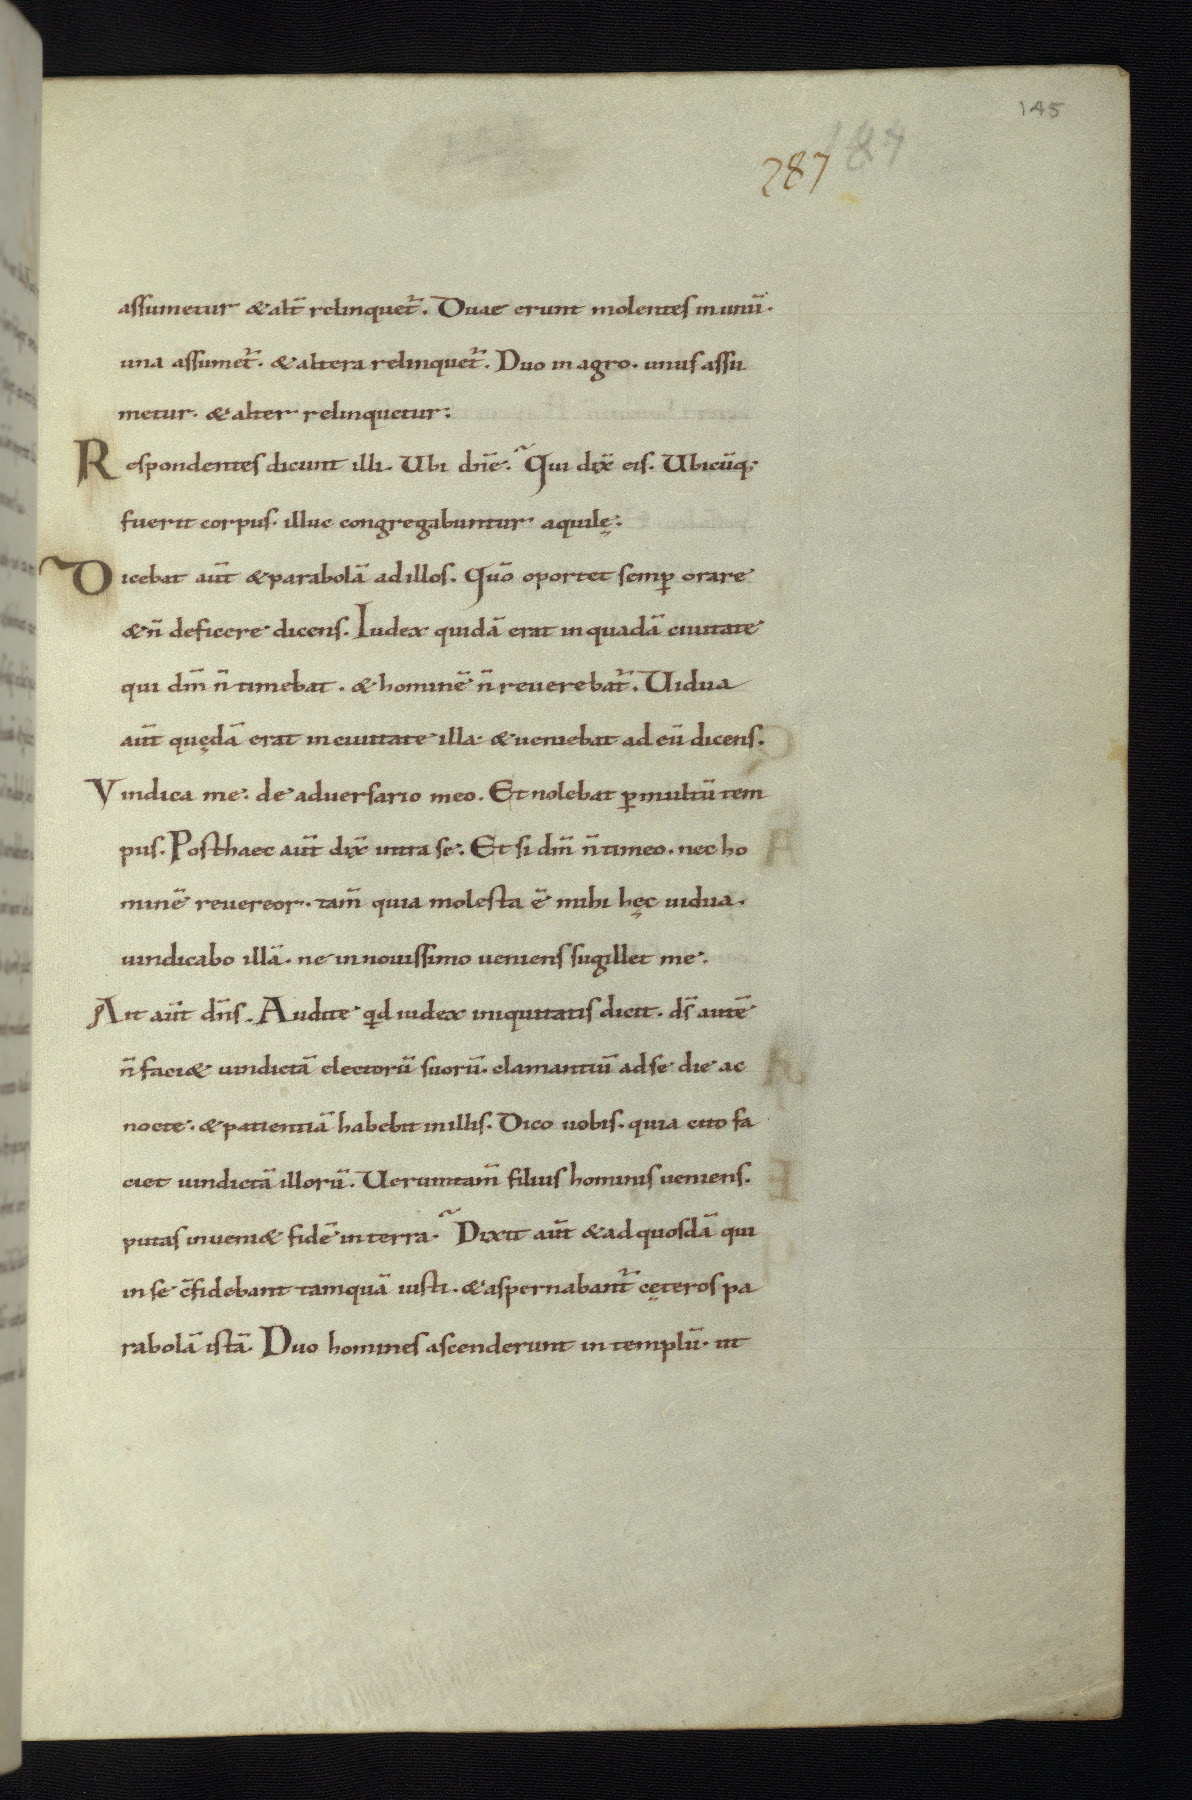 145
287 187
assumetur & alt̄ relinquet᷑. Duae erunt molentes in unū.
una assumet᷑. & altera relinquet᷑. Duo in agro. unus assu
metur. & alter relinquetur:
Respondentes dicunt illi. Ubi dn̄e? Qui dix̄ eis. Ubicūq;
fuerit corpus. illuc congregabuntur aquilę:
Dicebat aūt & parabolā ad illos. Quō oportet semp̄ orare
& n̄ deficere dicens. Iudex quidā erat in quadā ciuitate
qui dm̄ n̄ timebat. & hominē n̄ reuerebat᷑. Uidua
aūt quędā erat in ciuitate illa. & ueniebat ad eū dicens.
Vindica me. de aduersario meo. Et nolebat p̄ multū tem
pus. Post haec aūt dix̄ intra se. Et si dm̄ n̄ timeo. nec ho
minē reuereor. tam̄ quia molesta ē mihi hęc uidua.
uindicabo illā. ne in nouissimo ueniens sugillet me.
Ait aūt dn̄s. Audite qd̄ iudex iniquitatis dicit. ds̄ autē
n̄ faci& uindictā electorū suorū. clamantiū ad se die ac
nocte. & patientiā habebit in illis. Dico uobis. quia cito fa
ciet uindictā illorū. Uerumtam̄ filius hominis ueniens.
putas inueni& fidē in terra? Dixit aūt & ad quosdā qui
in se c̄fidebant tamquā iusti. & aspernabant᷑ cęteros pa
rabolā istā. Duo homines ascenderunt in templū. ut